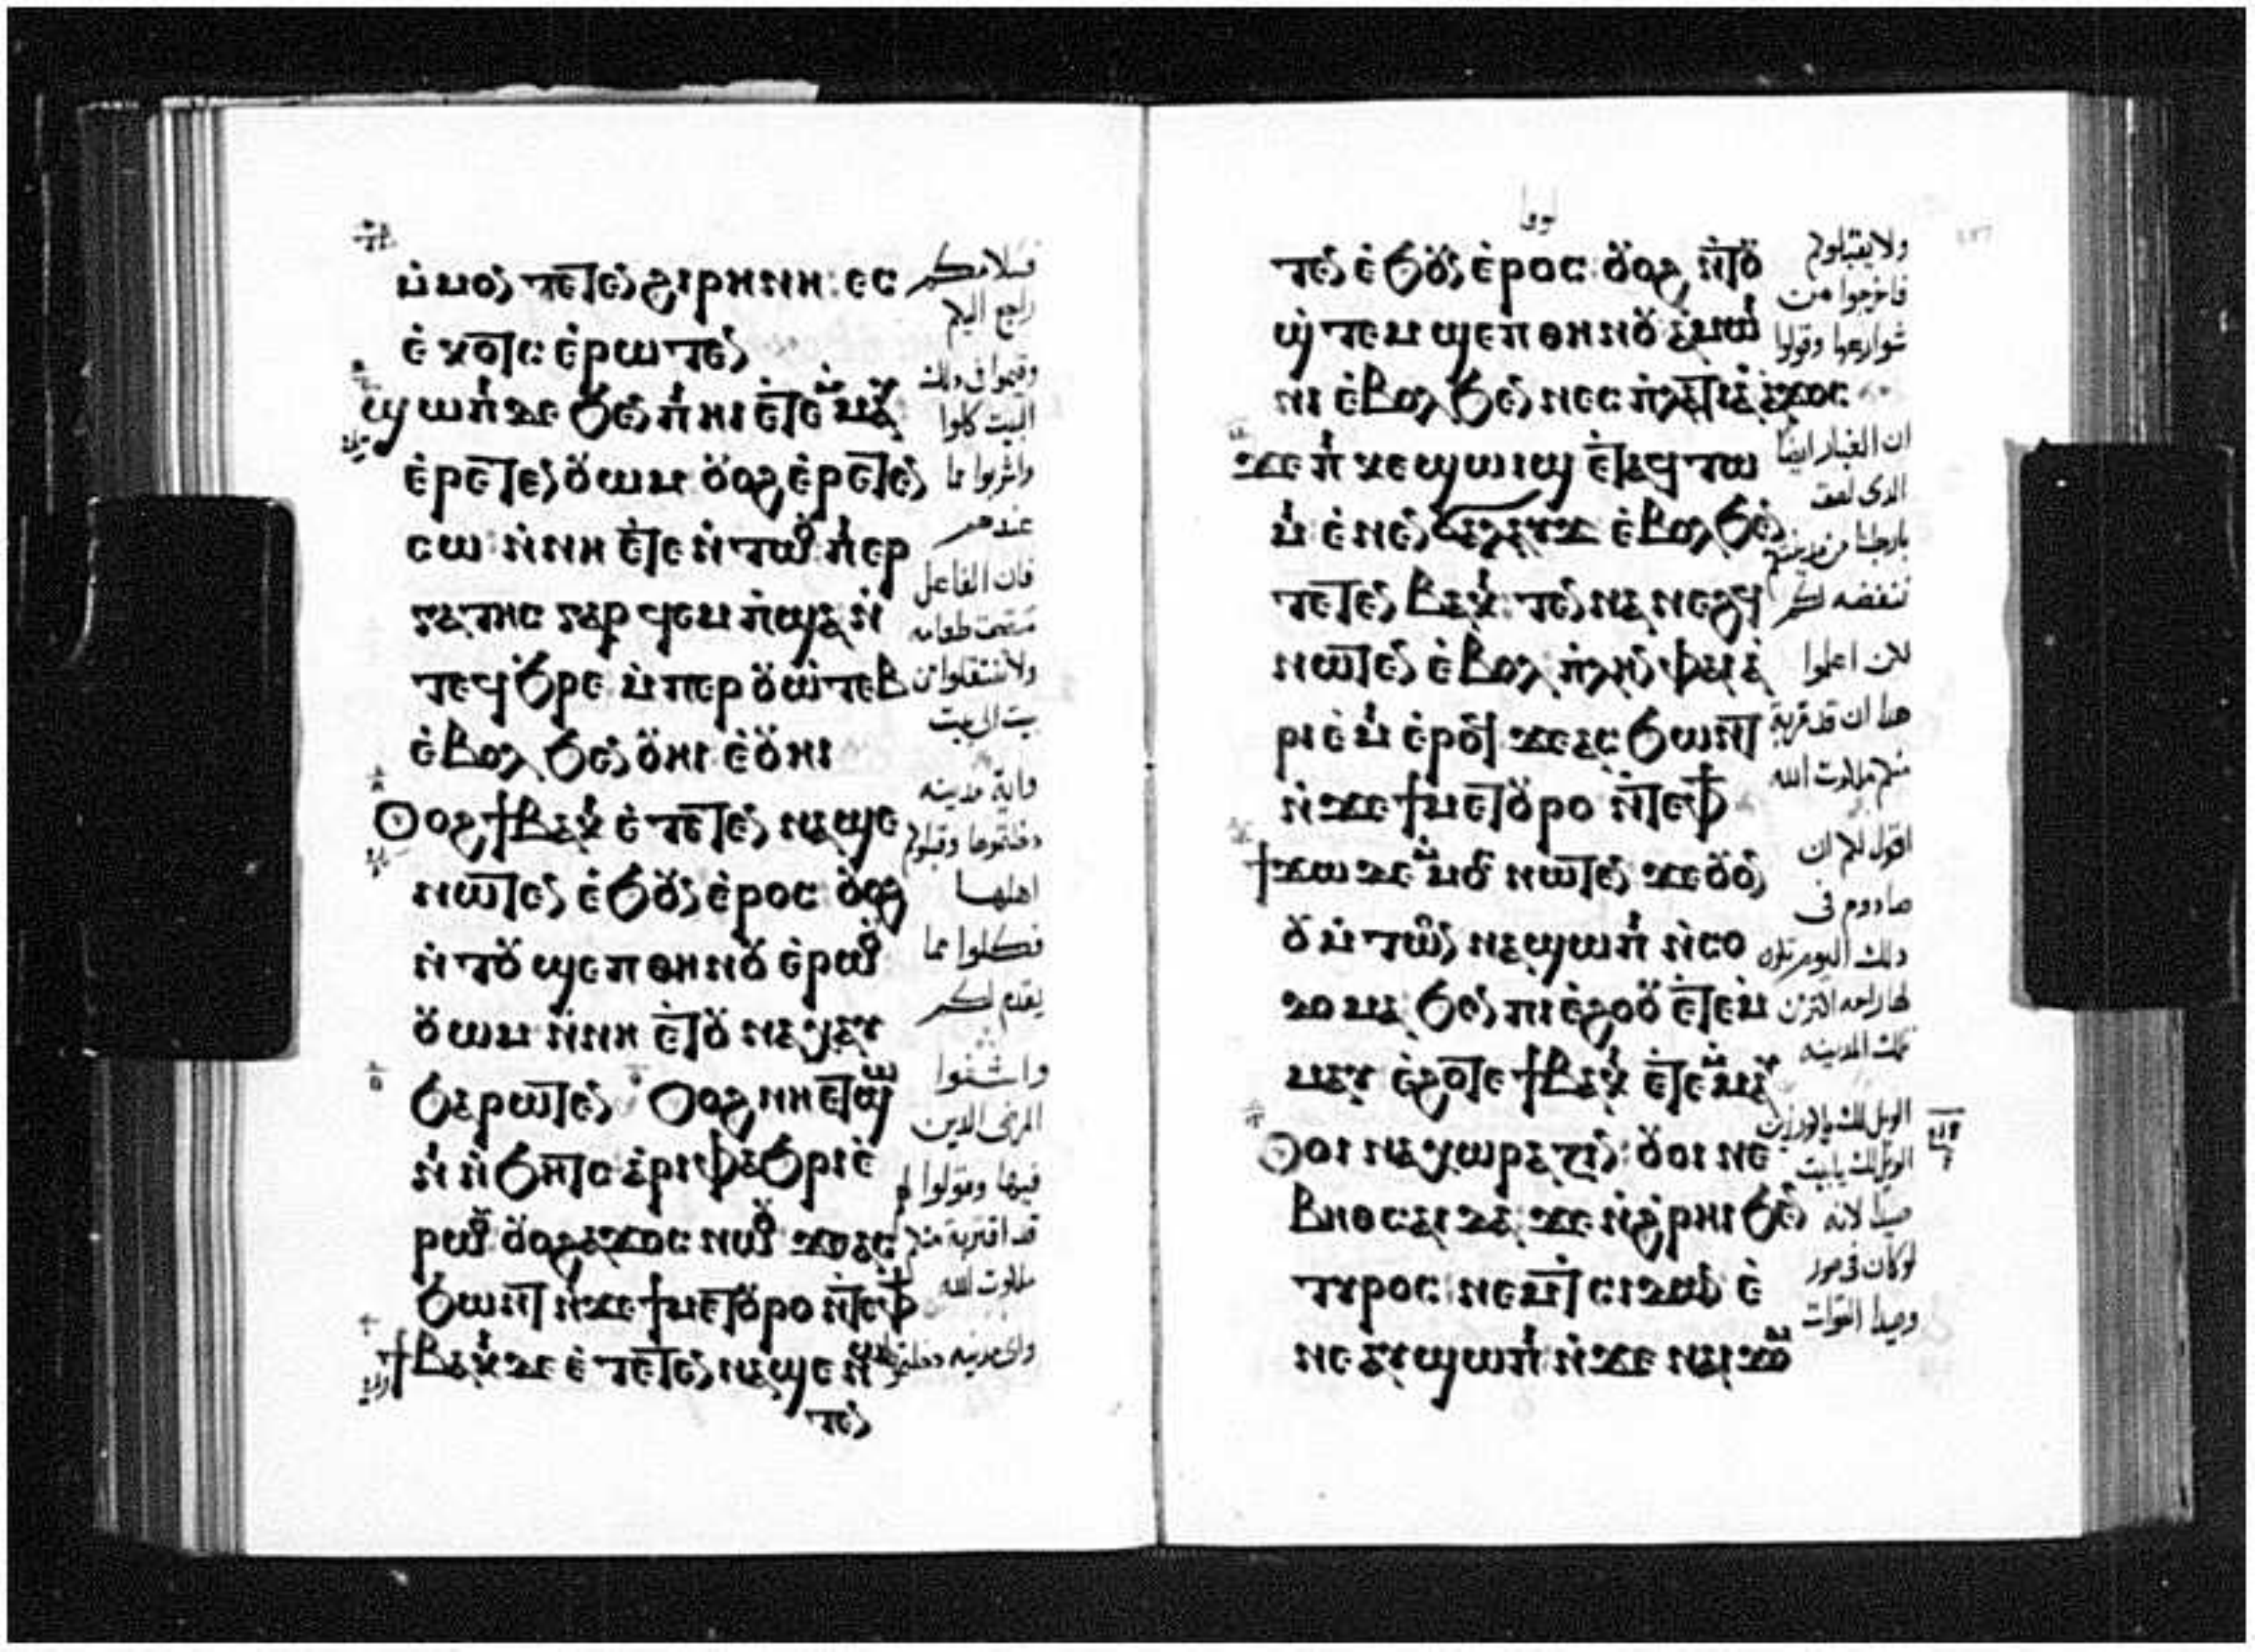 ⲙ̀ⲙⲟⲛ ⲧⲉⲧⲉⲛϩⲓⲣⲏⲛⲏ: ⲉⲥ
ⲉ̀ⲕⲟⲧⲥ ⲉ̀ⲣⲱⲧⲉⲛ
ϣⲱⲡⲓ ⲇⲉ ϧⲉⲛ ⲡⲓⲏⲓ ⲉ̀ⲧⲉ ⲙ̀ⲙⲁⲩ
ⲉ̀ⲣⲉⲧⲉⲛⲟⲩⲱⲙ ⲟⲩⲟϩ ⲉ̀ⲣⲉⲧⲉⲛ
ⲥⲱ ⲛ̀ⲛⲏ ⲉ̀ⲧⲉ ⲛ̀ⲧⲱⲟⲩ ⲡⲓⲉⲣ
ⲅⲁⲧⲏⲥ ⲅⲁⲣ ϥⲉⲙⲡ̀ϣⲁ ⲛ̀
ⲧⲉϥϧ̀ⲣⲉ ⲙ̀ⲡⲉⲣⲟⲩⲱ̀ⲧⲉⲃ
ⲉ̀ⲃⲟⲗ ϧⲉⲛ ⲟⲩⲏⲓ ⲉ̀ⲟⲩⲏⲓ
ⲟⲩⲟϩ ϯⲃⲁⲕⲓ ⲉ̀ⲧⲉⲧⲉⲛⲛⲁϣⲉ
ⲛⲱⲧⲉⲛ ⲉ̀ϧⲟⲩⲛ ⲉ̀ⲣⲟⲥ ⲟⲩⲟϩ
ⲛ̀ⲧⲟⲩϣⲉⲡ ⲑⲏⲛⲟⲩ ⲉ̀ⲣⲱⲟⲩ
ⲟⲩⲱⲙ ⲛ̀ⲛⲏ ⲉ̀ⲧⲟⲩⲛⲁⲭⲁⲩ
ϧⲁⲣⲱⲧⲉⲛ ⲟⲩⲟϩ ⲛⲏ ⲉⲧϣⲱ
ⲛⲓ ⲛ̀ϧⲏⲧⲥ ⲁⲣⲓⲫⲁϧⲣⲓ ⲉ̀
ⲣⲱⲟⲩ ⲟⲩⲟϩ ⲁϫⲟⲥ ⲛⲱⲟⲩ ϫⲉⲁⲥ
ϧⲱⲛⲧ ⲛ̀ϫⲉ ϯⲙⲉⲧⲟⲩⲣⲟ ⲛ̀ⲧⲉⲫϯ
ϯⲃⲁⲕⲓ ⲇⲉ ⲉ̀ⲧⲉⲧⲉⲛⲛⲁϣⲉ ⲛⲱ
ⲧⲉⲛ
فسلامكم
راجع اليكم
وقيموا فى ذلك
البيت كلوا
واشربوا مما
عندهم
فان الفاعل
مستحق طعامه
ولا تنتقلوا من
بيت الى بيت
واية مدينه
دخلتموها وقبلوكم
اهلها
فكلوا مما
يقدم لكم
واشفوا
المرضى الذين
فيها وقولوا لهم
قد اقتربة منكم
ملكوت الله
واى مدينه دخلتموها
لوقا
ⲧⲉⲛ ⲉ̀ϧⲟⲩⲛ ⲉ̀ⲣⲟⲥ ⲟⲩⲟϩ ⲛ̀ⲧⲟⲩ
ϣ̀ⲧⲉⲙϣⲉⲡ ⲑⲏⲛⲟⲩ ⲁⲙⲱⲓ
ⲛⲓ ⲉ̀ⲃⲟⲗ ϧⲉⲛ ⲛⲉⲥⲡ̀ⲗⲁⲧⲓⲁ ⲁϫⲟⲥ
ϫⲉ ⲡⲓⲕⲉϣⲱⲓϣ ⲉ̀ⲧⲁϥⲧⲱ
ⲙⲓ ⲉ̀ⲛⲉⲛϭⲁⲗⲁⲩϫ ⲉ̀ⲃⲟⲗ ϧⲉⲛ
ⲧⲉⲧⲉⲛⲃⲁⲕⲓ ⲧⲉⲛⲛⲁⲛⲉϩϥ
ⲛⲱⲧⲉⲛ ⲉ̀ⲃⲟⲗ ⲡ̀ⲗⲏⲛ ⲫⲁⲓ ⲁ̀
ⲣⲓⲉ̀ⲙⲓ ⲉ̀ⲣⲟϥ ϫⲉⲁⲥϧⲱⲛⲧ
ⲛ̀ϫⲉ ϯⲙⲉⲧⲟⲩⲣⲟ ⲛ̀ⲧⲉⲫϯ
ϯϫⲱ ⲇⲉ ⲙ̀ⲙⲟⲥ ⲛⲱⲧⲉⲛ ϫⲉ ⲟⲩⲟⲛ
ⲟⲩⲙ̀ⲧⲟⲛ ⲛⲁϣⲱⲡⲓ ⲛ̀ⲥⲟ
ⲇⲟⲙⲁ ϧⲉⲛ ⲡⲓⲉ̀ϩⲟⲟⲩ ⲉ̀ⲧⲉⲙ̀
ⲙⲁⲩ ⲉ̀ϩⲟⲧⲉ ϯⲃⲁⲕⲓ ⲉ̀ⲧⲉⲙ̀ⲙⲁⲩ
ⲟⲩⲟⲓ ⲛⲉ ⲭⲱⲣⲁⲍⲓⲛ: ⲟⲩⲟⲓ ⲛⲉ
ⲃⲏⲑⲥⲁⲓⲇⲁ ϫⲉ ⲛ̀ϩ̀ⲣⲏⲓ ϧⲉⲛ
ⲧⲩⲣⲟⲥ ⲛⲉⲙ ⲧⲥⲓⲇⲱⲛ ⲉ̀
ⲛⲉ ⲁⲩϣⲱⲡⲓ ⲛ̀ϫⲉ ⲛⲁⲓϫⲟⲙ
ولا يقبلوكم
فاخرجوا من
شوارعها وقولوا
ان الغبار ايضا
الذى لصق
بارجلنا من مدينتكم
ننفضه لكم
لكن اعلموا
هذا ان قد قربة
منكم ملكوت الله
اقول لكم ان
صادوم فى
ذلك اليوم تكون
لها راحه اكثر من
تلك المدينه
الويل لك يا كورزين
الويل لك يا بيت
صيدا لانه
لو كان فى صور
وصيدا القوات